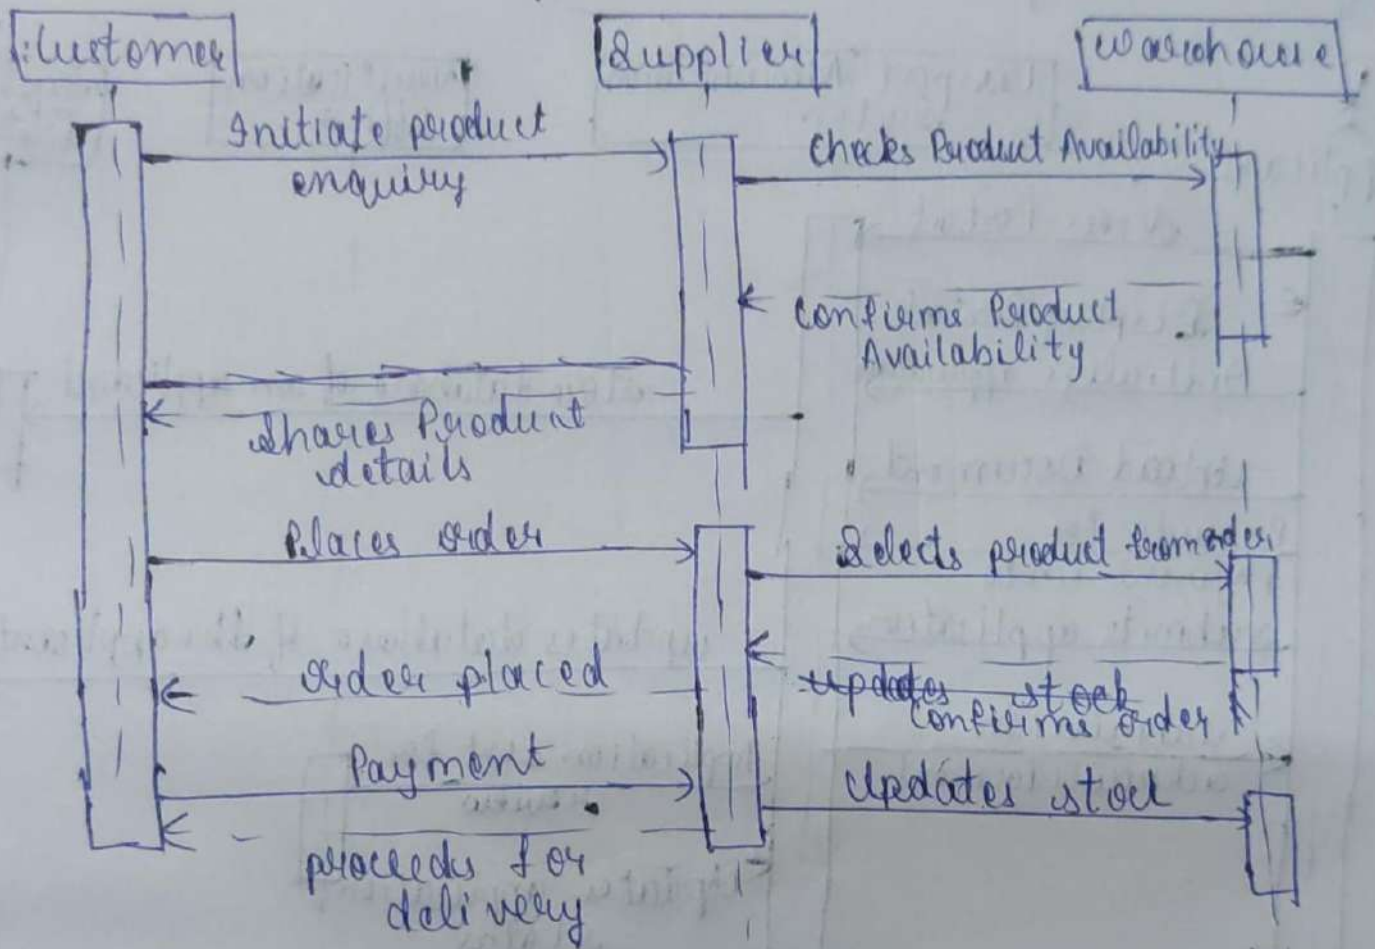 :Customer
Supplier
Warehouse
Initiate product
enquiry
Checks Product Availability
Confirms Product
Availability
Shares Product
details
Places order
Selects product from order
Updates stock
Confirms order
order placed
Payment
Updates stock
proceeds for
delivery